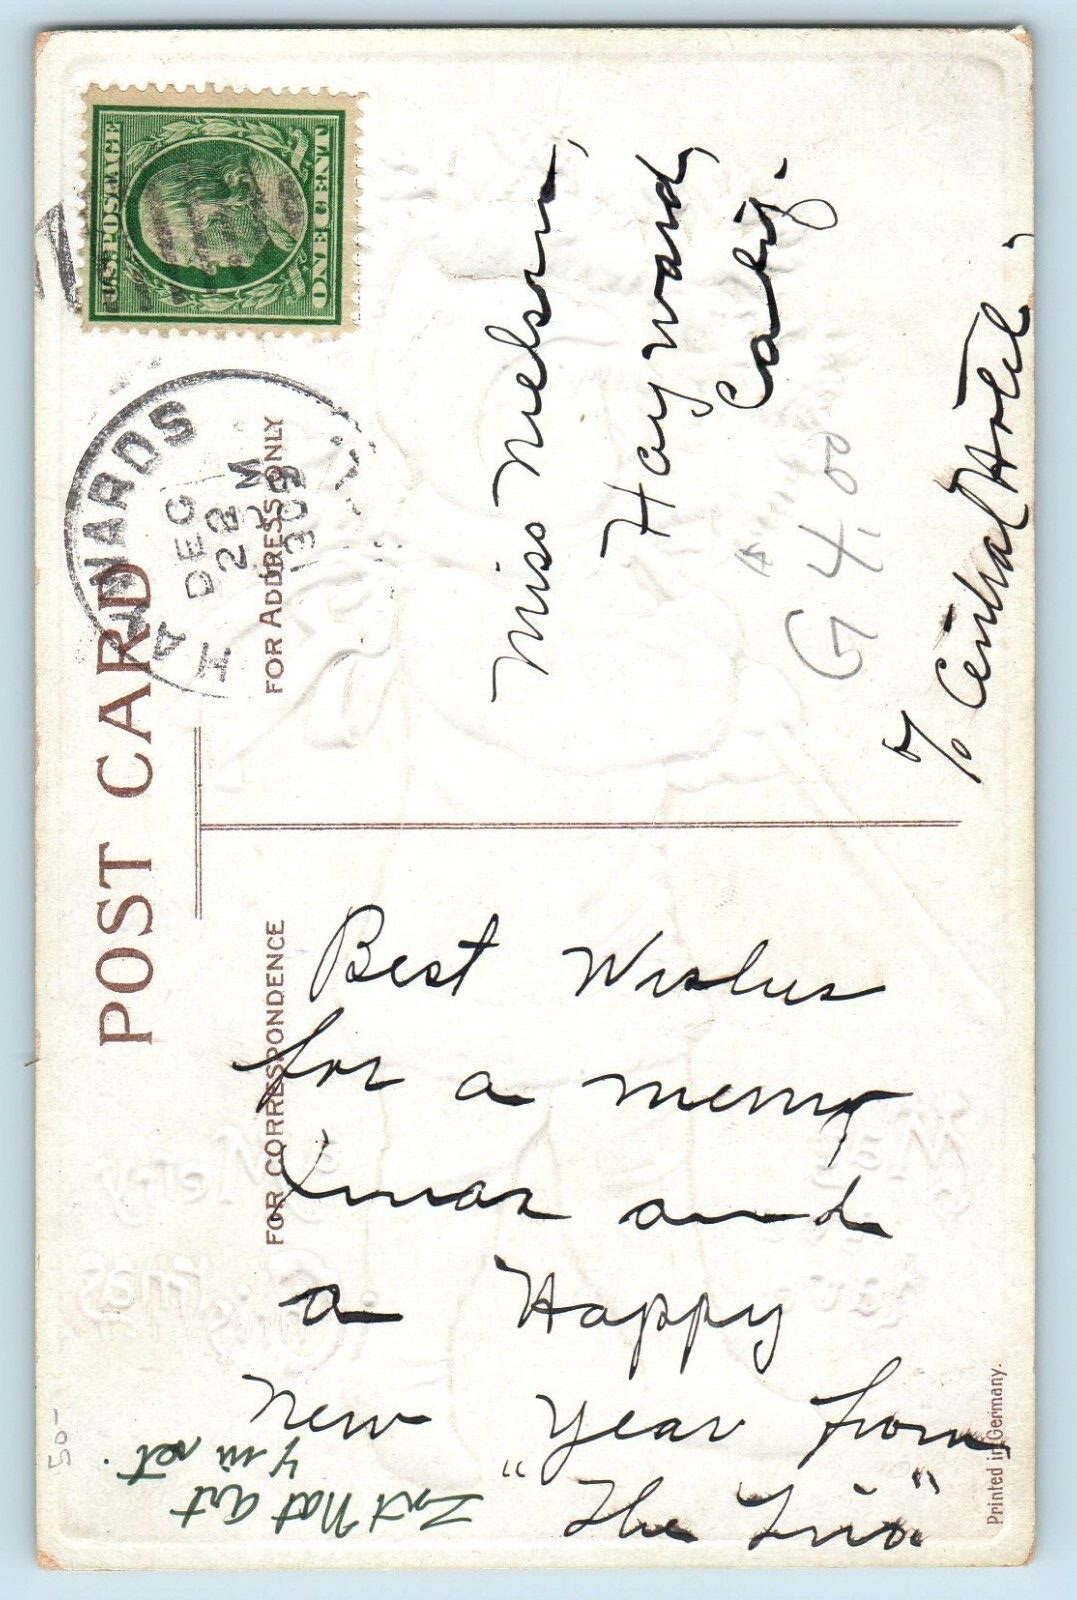 U.S. POSTAGE
ONE CENT
HAYWARDS
DEC
22
M
1909
POST CARD
FOR ADDRESS ONLY
Miss Nelson,
Hayward,
Calif.
c/o Central Hotel,
G 4.00
FOR CORRESPONDENCE
Best Wishes
for a merry
Xmas and
a Happy
New Year from
"The Trio"
Int'l Art
4 in set.
50-
Printed in Germany.
May
a Merry
Christmas